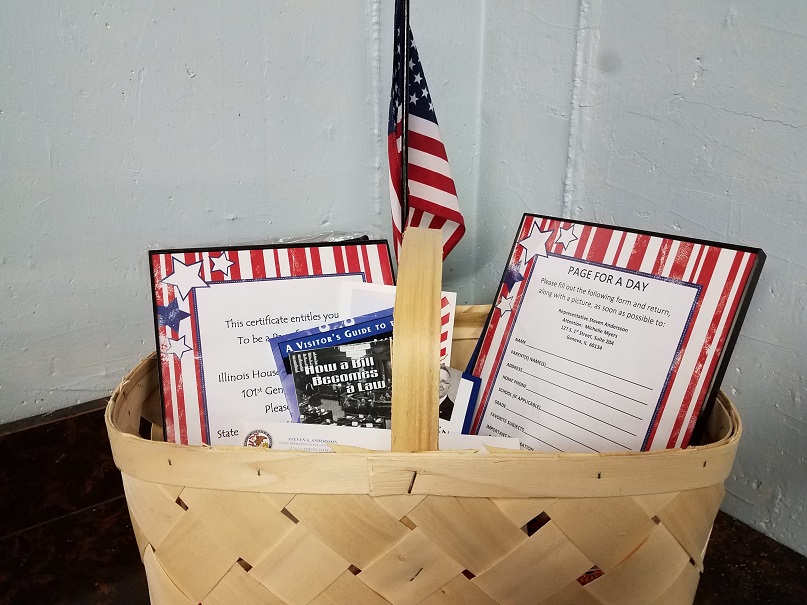 This certificate entitles you
To be a
Illinois House
101st Gen
Please
State
A Visitor's Guide to
How a Bill
Becomes
a Law
STEVEN A. ANDERSSON
PAGE FOR A DAY
Please fill out the following form and return,
along with a picture, as soon as possible to:
Representative Steven Andersson
Attention: Michelle Myers
127 S. 1st Street, Suite 204
Geneva, IL 60134
NAME
PARENT(S) NAME(S)
ADDRESS
HOME PHONE
SCHOOL OF APPLICABLE)
GRADE
FAVORITE SUBJECTS
IMPORTANT